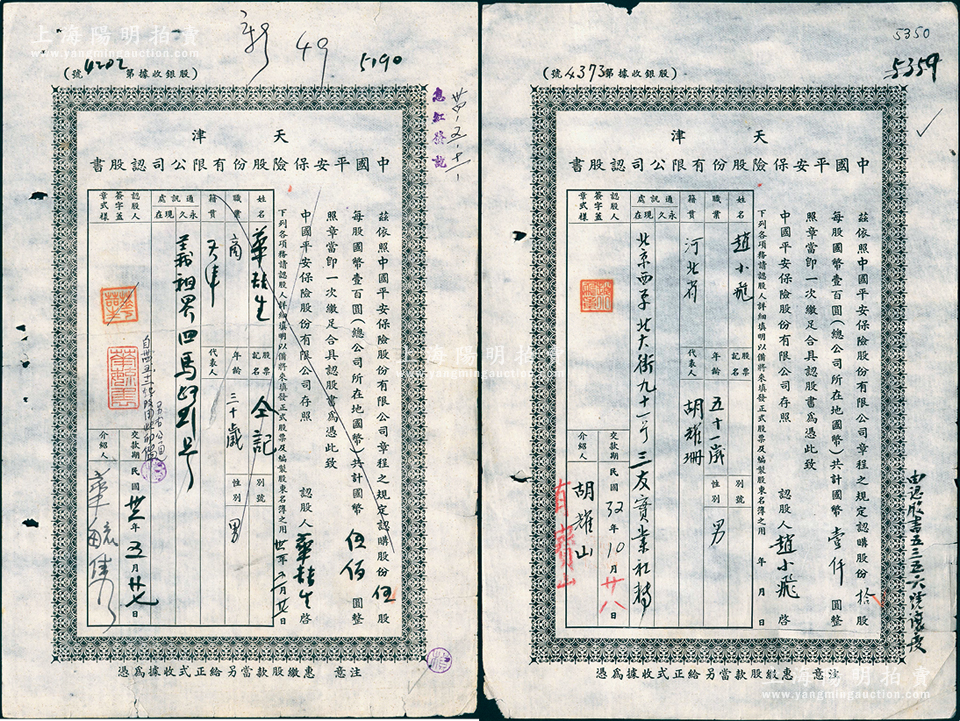 上海陽明拍賣
www.yangmingauction.com
新 49 5190
(號4202第據收銀股)
津 天
書股認司公限有份股險保安平國中
茲依照中國平安保險股份有限公司章程之規定認購股份伍股
每股國幣壹百圓(總公司所在地國幣)共計國幣伍佰圓整
照章當即一次繳足合具認股書為憑此致
中國平安保險股份有限公司存照
認股人 啓
下列各項務請認股人詳細填明以備將來填發正式股票及編製股東名簿之用
姓名 股票記名 仝記 別號
職業 商 年齡 三十歲 性別 男
籍貫 天津 代表人
通訊處 永久 現在
認股人簽字蓋章式樣
交款期 民國卅三年五月廿七日
介紹人
憑為據收式正給另當款股繳惠 意注
5350
5359
(號4373第據收銀股)
津 天
書股認司公限有份股險保安平國中
茲依照中國平安保險股份有限公司章程之規定認購股份拾股
每股國幣壹百圓(總公司所在地國幣)共計國幣壹仟圓整
照章當即一次繳足合具認股書為憑此致
中國平安保險股份有限公司存照
認股人 趙小飛 啓
下列各項務請認股人詳細填明以備將來填發正式股票及編製股東名簿之用 年 月 日
姓名 趙小飛 股票記名 別號
職業 年齡 五十一歲 性別 男
籍貫 河北省 代表人 胡耀珊
通訊處 永久 現在 北京西單北大街九十一号三友實業社轉
認股人簽字蓋章式樣
交款期 民國32年10月廿八日
介紹人 胡耀山
憑為據收式正給另當款股繳惠 意注
上海陽明拍賣
www.yangmingauction.com